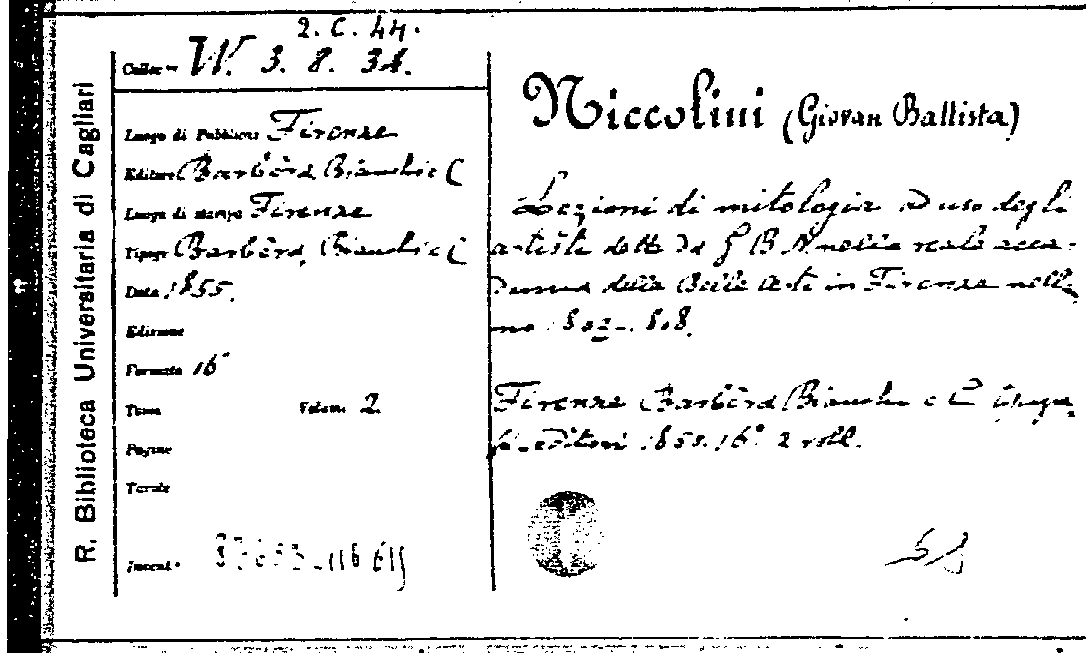 R. Biblioteca Universitaria di Cagliari
2. C. 44.
Colloc - W. 3. 8. 34.
Luogo di Pubblicaz Firenze
Editore Barbèra, Bianchi e C
Luogo di stampa Firenze
Tipogr Barbèra, Bianchi e C
Data 1855.
Edizione
Formato 16°
Tomo Volumi 2.
Pagine
Tavole
Invent.
Niccolini (Giovan Battista)
Lezioni di mitologia ad uso degli
artisti dette da G B N nella reale acca-
demia delle Belle Arti in Firenze nell
Firenze Barbèra Bianchi e C
editori 1855. 16° 2 voll.